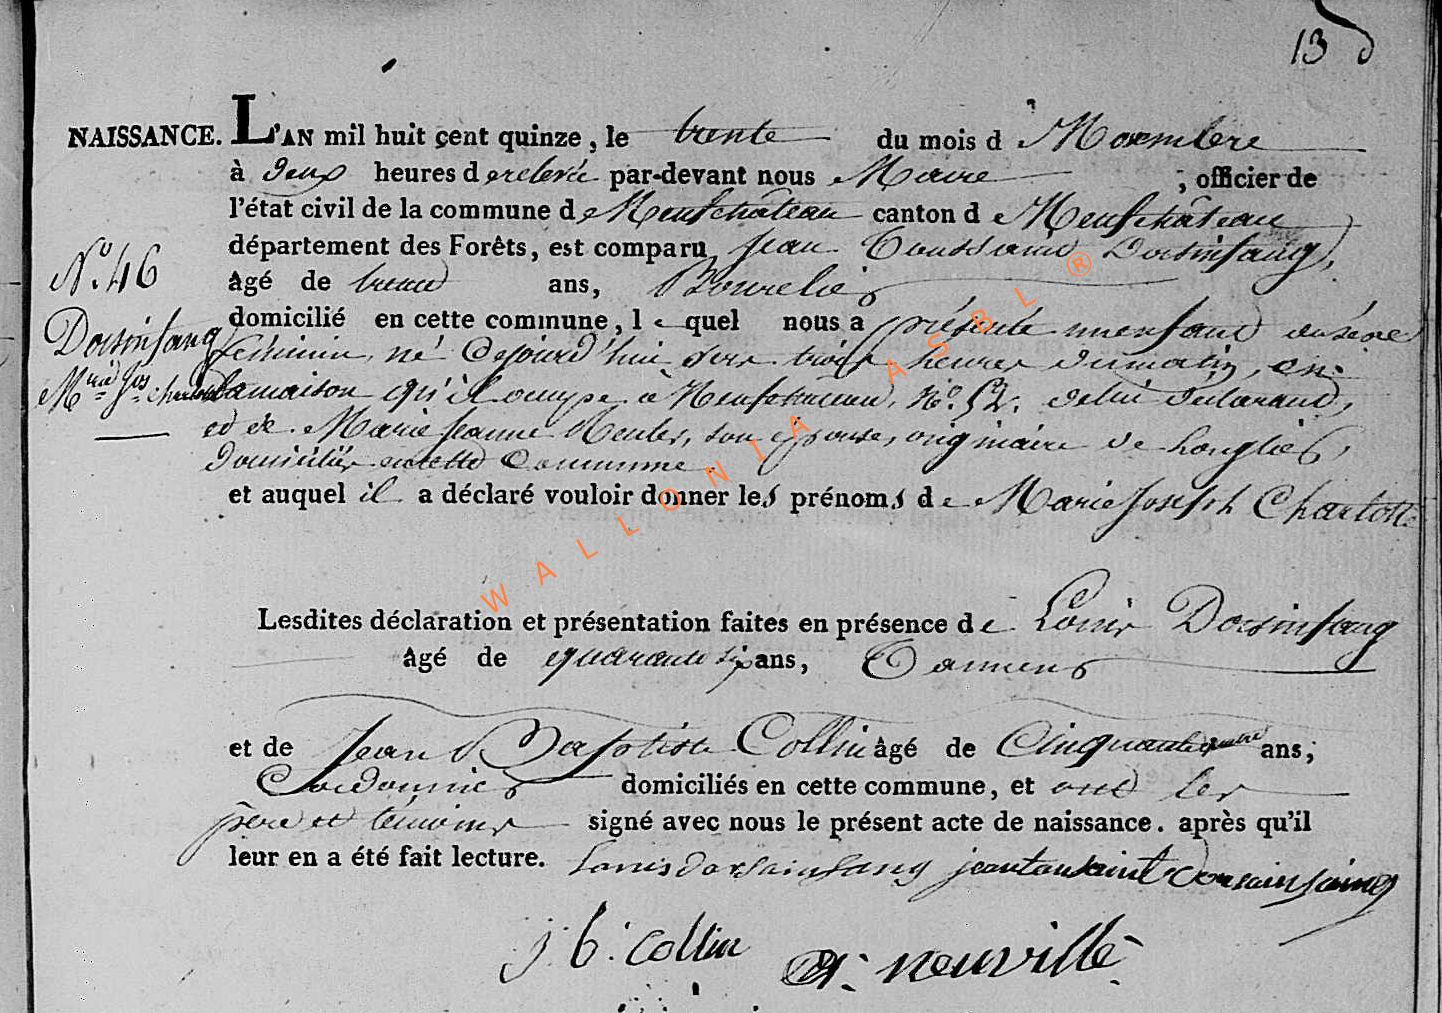 13
NAISSANCE. L'AN mil huit cent quinze, le trente du mois d Novembre
à deux heures d erelevée par-devant nous Maire, officier de
l'état civil de la commune de Neufchâteau canton de Neufchâteau
département des Forêts, est comparu Jean Toussaint Dorsinfang,
N.º 46
âgé de trente ans, Bourelier
domicilié en cette commune, le quel nous a présenté un enfant du sexe
Dorsinfang
féminin, né cejourd'hui sur trois heures du matin, en
M.rie Jos. Charlotte
la maison qu'il occupe a Neufchateau, N.º 52. de lui déclarant,
et de Marie Jeanne Reuter, son épouse, originaire de Longlier,
domiciliés en cette Commune.
et auquel il a déclaré vouloir donner les prénoms de Marie Joseph Charlotte
Lesdites déclaration et présentation faites en présence de Louis Dorsinfang
âgé de quarante six ans, Tanneur
et de Jean Baptiste Collin âgé de Cinquante quatre ans,
Cordonnier domiciliés en cette commune, et ont les
père et témoins signé avec nous le présent acte de naissance. après qu'il
leur en a été fait lecture. Louis dorsainfang jean tousaint dorsainfaing
j. b. collin neuville
WALLONIA ASBL ®